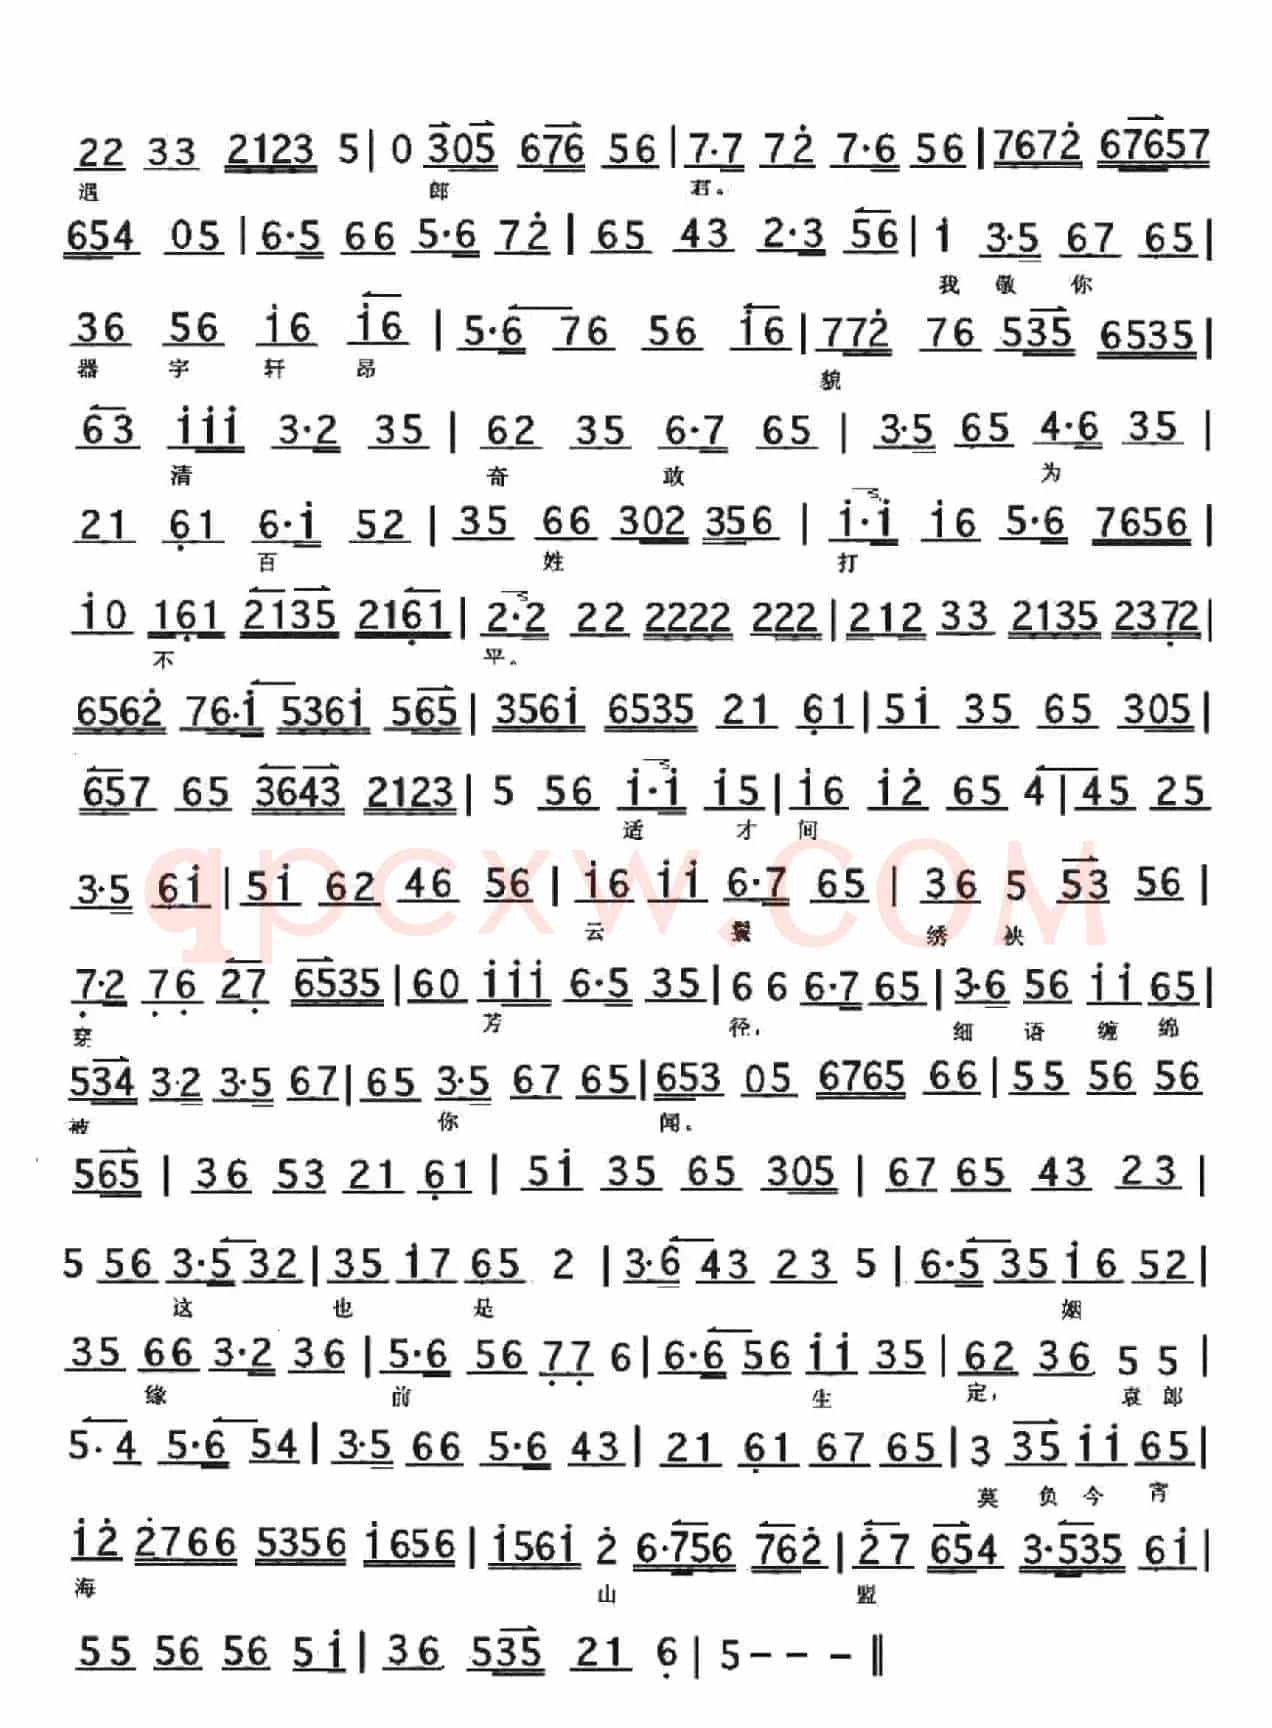 22 33 2123 5 | 0 305 676 56 | 7·7 72̇ 7·6 56 | 7672̇ 67657
遇 郎 君。
654 05 | 6·5 66 5·6 72̇ | 65 43 2·3 56 | i 3·5 67 65 |
我 敬 你
36 56 i6 i6 | 5·6 76 56 i6 | 772̇ 76 535 6535 |
器 宇 轩 昂 貌
63 iii 3·2 35 | 62 35 6·7 65 | 3·5 65 4·6 35 |
清 奇 敢 为
21 6̣1 6·i 52 | 35 66 302 356 | i·i i6 5·6 7656 |
百 姓 打
i0 16̣1 2135 216̣1 | 2·2 22 2222 222 | 212 33 2135 237̣2 |
不 平。
6562̇ 76·i 536i 565 | 356i 6535 21 6̣1 | 5i 35 65 305 |
657 65 3643 2123 | 5 56 i·i i5 | i6 i2̇ 65 4 | 45 25
适 才 间
3·5 6i | 5i 62 46 56 | i6 ii 6·7 65 | 36 5 53 56 |
云 鬓 绣 袂
7̣·2 7̣6̣ 27̣ 6535 | 60 iii 6·5 35 | 6 6 6·7 65 | 3·6 56 ii 65 |
穿 芳 径， 细 语 缠 绵
534 3·2 3·5 67 | 65 3·5 67 65 | 653 05 6765 66 | 55 56 56
被 你 闻。
565 | 36 53 21 6̣1 | 5i 35 65 305 | 67 65 43 23 |
5 56 3·5 32 | 35 i7 65 2 | 3·6 43 23 5 | 6·5 35 i6 52 |
这 也 是 姻
35 66 3·2 36 | 5·6 56 7̣7̣ 6 | 6·6 56 ii 35 | 62 36 5 5 |
缘 前 生 定， 袁 郎
5·4 5·6 54 | 3·5 66 5·6 43 | 21 6̣1 67 65 | 3 35 ii 65 |
莫 负 今 宵
i2̇ 2̇766 5356 i656 | i56i 2̇ 6·756 762̇ | 2̇7 654 3·535 6i |
海 山 盟
55 56 56 5i | 36 535 21 6̣ | 5 - - - ‖
qpcxw.COM